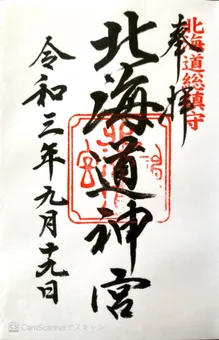 北海道総鎮守
奉拝
北海道神宮
令和三年九月十九日
CamScannerでスキャン